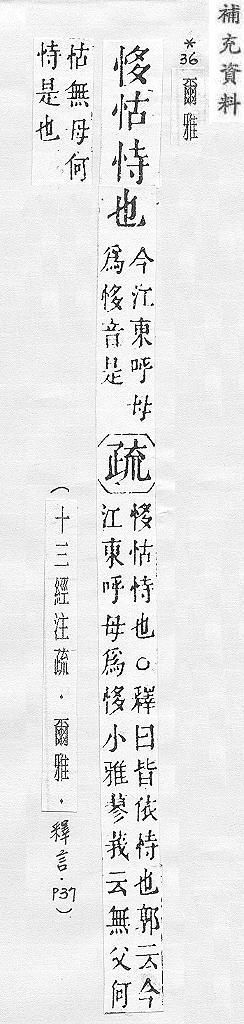 補充資料
*36 爾雅
恀怙恃也
今江東呼母
爲恀音是
(疏)
恀怙恃也○釋曰皆依恃也郭云今
江東呼母爲恀小雅蓼莪云無父何
怙無母何
恃是也
(十三經注疏．爾雅．釋言．P37)